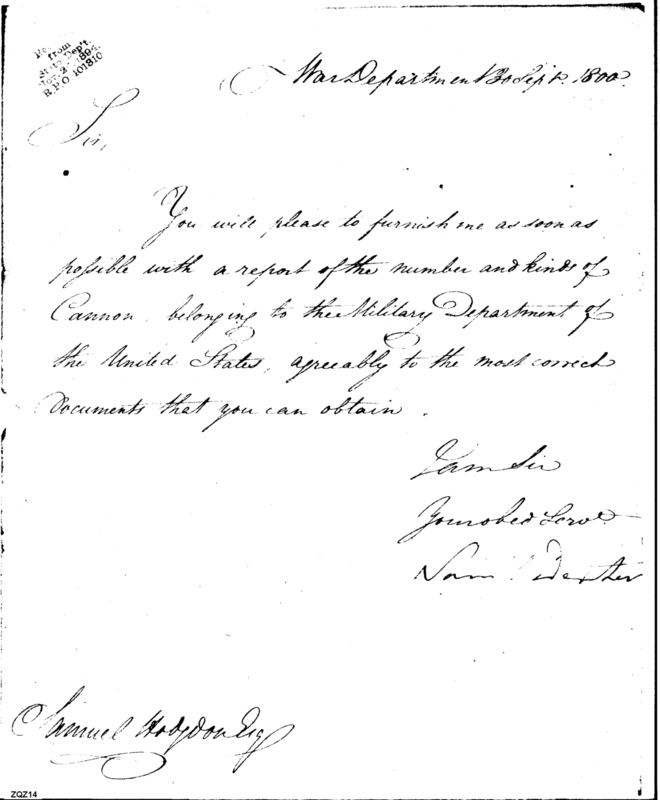 from
State Dep't.
Nov. 2 1894.
R.P.O 101810
War Department 30 Sept. 1800.
Sir,
You will please to furnish me as soon as
possible with a report of the number and kinds of
Cannon belonging to the Military Department of
the United States, agreeably to the most correct
Documents that you can obtain.
I am Sir
Your obed Servt
Sam Dexter
Samuel Hodgdon Esq
ZQZ14